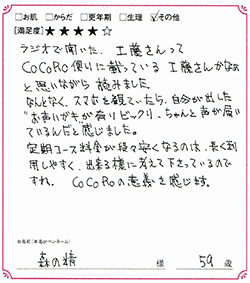 □お肌 □からだ □更年期 □生理 ☑その他
[満足度]★★★★☆
ラジオで聞いた、工藤さんって
CoCoRo便りに載っている工藤さんかなぁ
と思いながら読みました。
なんとなく、スマホを観ていたら、自分が出した
お声いがきが有りビックリ、ちゃんと声が届い
ているんだと感じました。
定期コース料金が段々安くなるのは、長く利
用しやすく、出来る様に考えて下さっているので
すね。 CoCoRoの意義を感じます。
お名前(本名かペンネーム)
森の精 様 59 歳